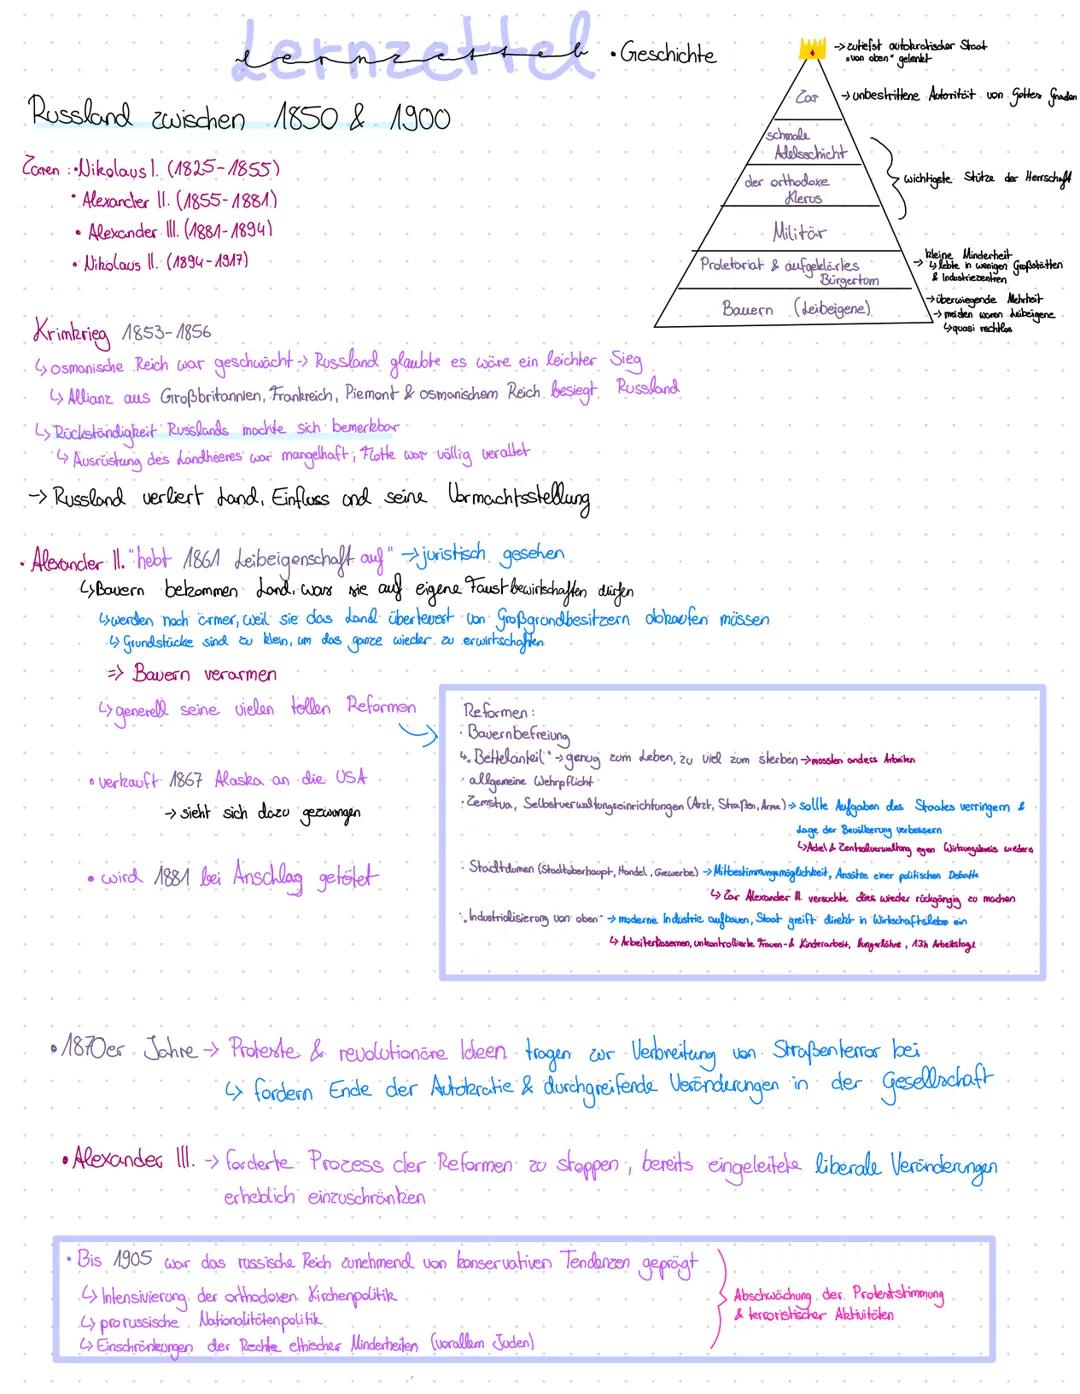 Lernzettel
lernzettel • Geschichte
Russland zwischen 1850 & 1900
Zaren: • Nikolaus I. (1825-1855)
• Alexander II. (1855-1881)
• Alexander III. (1881-1894)
• Nikolaus II. (1894-1917)
→ zutiefst autokratischer Staat
"von oben" gelenkt
Zar
→ unbestrittene Autorität von Gottes Gnaden
schmale
Adelsschicht
der orthodoxe
Klerus
wichtigste Stütze der Herrschaft
Militär
Proletariat & aufgeklärtes
Bürgertum
→ kleine Minderheit
↳ lebte in wenigen Großstätten
& Industriezentren
Bauern (Leibeigene)
→ überwiegende Mehrheit
→ meisten waren Leibeigene
↳ quasi rechtlos
Krimkrieg 1853-1856
↳ osmanische Reich war geschwächt → Russland glaubte es wäre ein leichter Sieg
↳ Allianz aus Großbritannien, Frankreich, Piemont & osmanischem Reich besiegt Russland
↳ Rückständigkeit Russlands machte sich bemerkbar
↳ Ausrüstung des Landheeres war mangelhaft; Flotte war völlig veraltet
→ Russland verliert Land, Einfluss und seine Vormachtsstellung
• Alexander II. "hebt 1861 Leibeigenschaft auf" → juristisch gesehen
↳ Bauern bekommen Land, was sie auf eigene Faust bewirtschaften dürfen
↳ werden noch ärmer, weil sie das Land überteuert von Großgrundbesitzern abkaufen müssen
↳ Grundstücke sind zu klein, um das ganze wieder zu erwirtschaften
=> Bauern verarmen
↳ generell seine vielen tollen Reformen
• verkauft 1867 Alaska an die USA
→ sieht sich dazu gezwungen
• wird 1881 bei Anschlag getötet
Reformen:
• Bauernbefreiung
↳ "Bettelanteil" → genug zum Leben, zu viel zum sterben → mussten anders Arbeiten
• allgemeine Wehrpflicht
• Zemstva, Selbstverwaltungseinrichtungen (Arzt, Straßen, Arme) → sollte Aufgaben des Staates verringern &
Lage der Bevölkerung verbessern
↳ Adel & Zentralverwaltung egen Wirkungskreis wieder
• Stadtdumen (Stadtoberhaupt, Handel, Gewerbe) → Mitbestimmungsmöglichkeit, Ansätze einer politischen Debatte
↳ Zar Alexander III. versuchte dies wieder rückgängig zu machen
• "Industrialisierung von oben" → moderne Industrie aufbauen, Staat greift direkt in Wirtschaftsleben ein
↳ Arbeiterkasernen, unkontrollierte Frauen- & Kinderarbeit, Hungerlöhne, 13h Arbeitstage
• 1870er Jahre → Proteste & revolutionäre Ideen tragen zur Verbreitung von Straßenterror bei
↳ fordern Ende der Autokratie & durchgreifende Veränderungen in der Gesellschaft
• Alexander III. → forderte Prozess der Reformen zu stoppen, bereits eingeleitete liberale Veränderungen
erheblich einzuschränken
• Bis 1905 war das russische Reich zunehmend von konservativen Tendenzen geprägt
↳ Intensivierung der orthodoxen Kirchenpolitik
↳ prorussische Nationalitätenpolitik
↳ Einschränkungen der Rechte ethischer Minderheiten (vorallem Juden)
Abschwächung der Proteststimmung
& terroristischer Aktivitäten